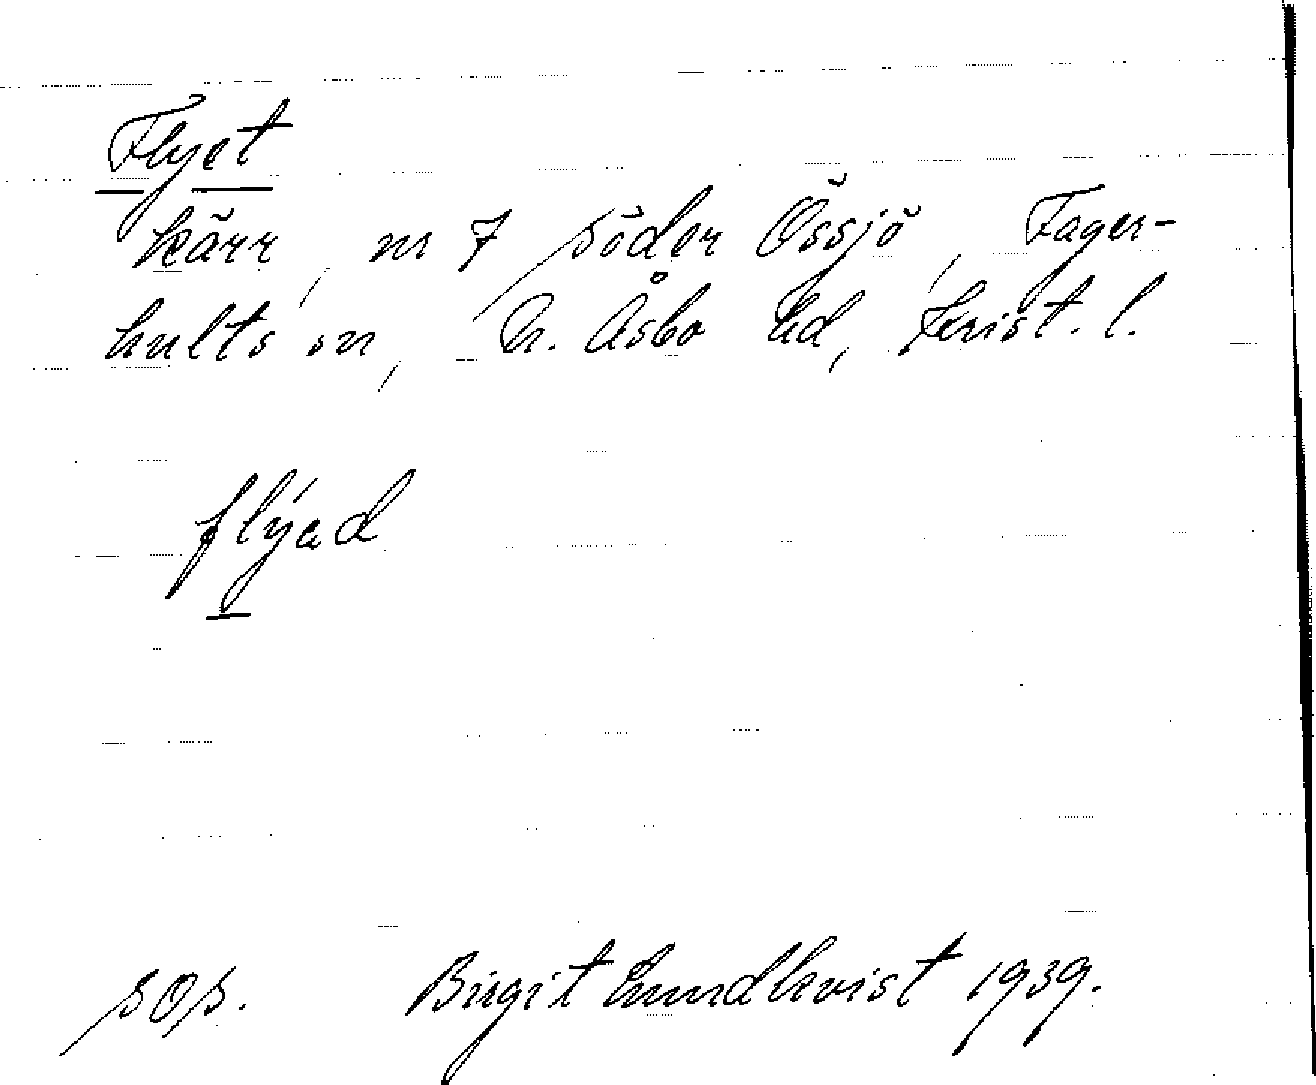 Flyet
kärr, nr 7 söder Össjö, Fager-
hults sn, N. Åsbo hd, Krist. l.
flýəd
sos. Birgit Lundkvist 1939.